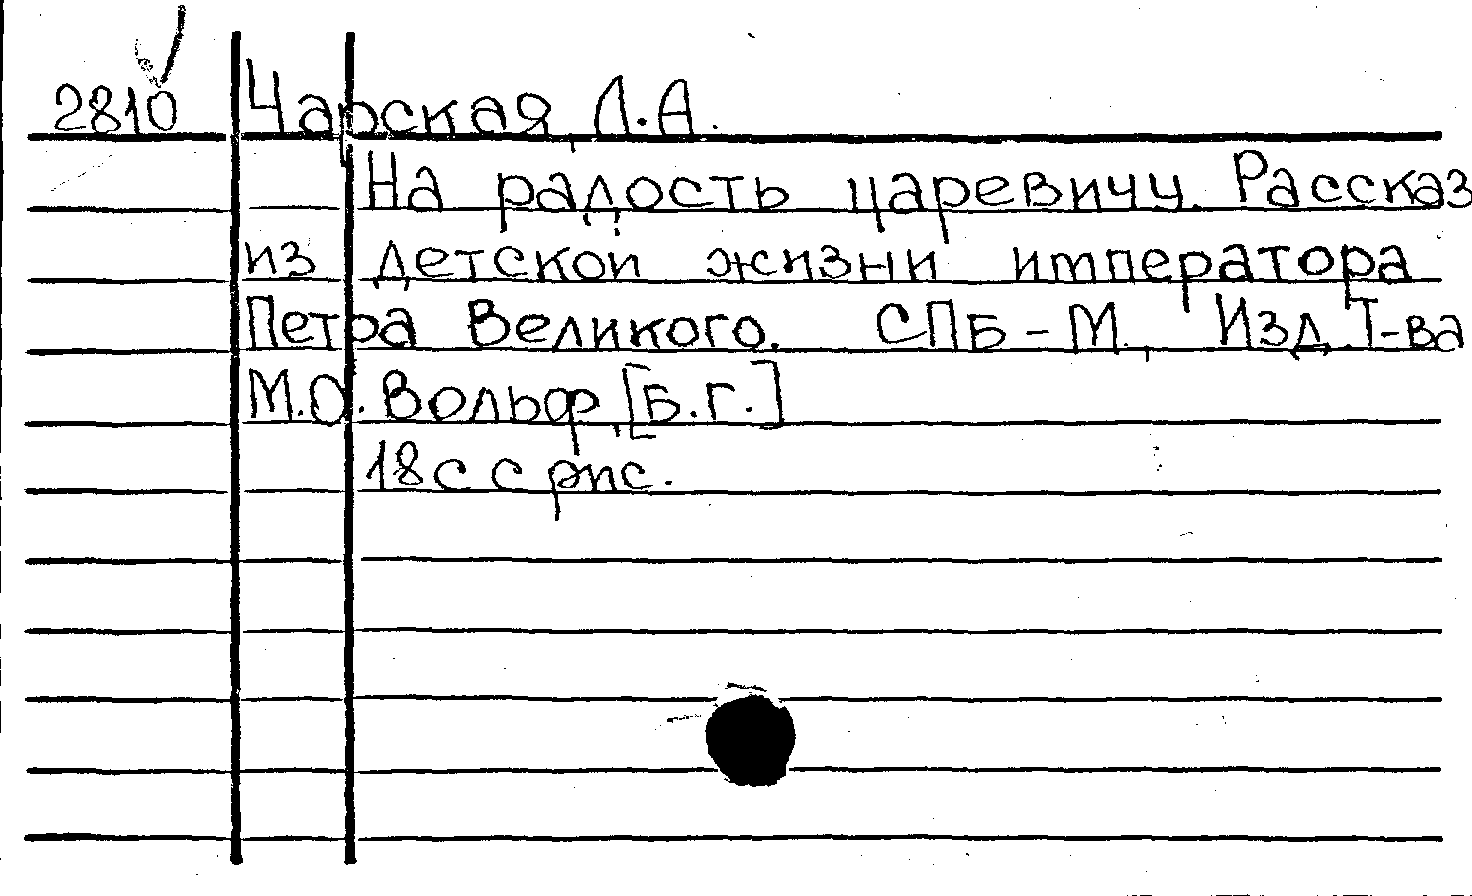 2810 Чарская, Л.А.
На радость царевичу. Рассказ
из детской жизни императора
Петра Великого. СПБ - М., Изд. Т-ва
М.О. Вольф, [Б.г.]
18 с с рис.